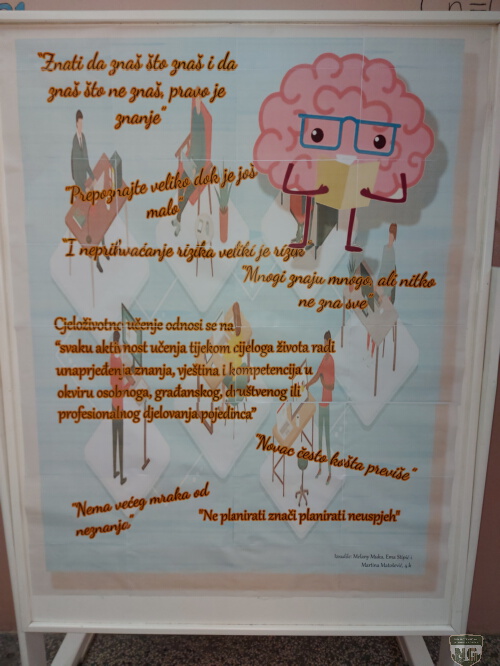 "Znati da znaš što znaš i da
znaš što ne znaš, pravo je
znanje"
"Prepoznajte veliko dok je još
malo"
"I neprihvaćanje rizika veliki je rizik"
"Mnogi znaju mnogo, ali nitko
ne zna sve"
Cjeloživotno učenje odnosi se na
"svaku aktivnost učenja tijekom cijeloga života radi
unaprjeđenja znanja, vještina i kompetencija u
okviru osobnoga, građanskog, društvenog ili
profesionalnog djelovanja pojedinca"
"Novac često košta previše"
"Nema većeg mraka od
neznanja"
"Ne planirati znači planirati neuspjeh"
Izradile: Melany Ema
Martina 4.b
NG